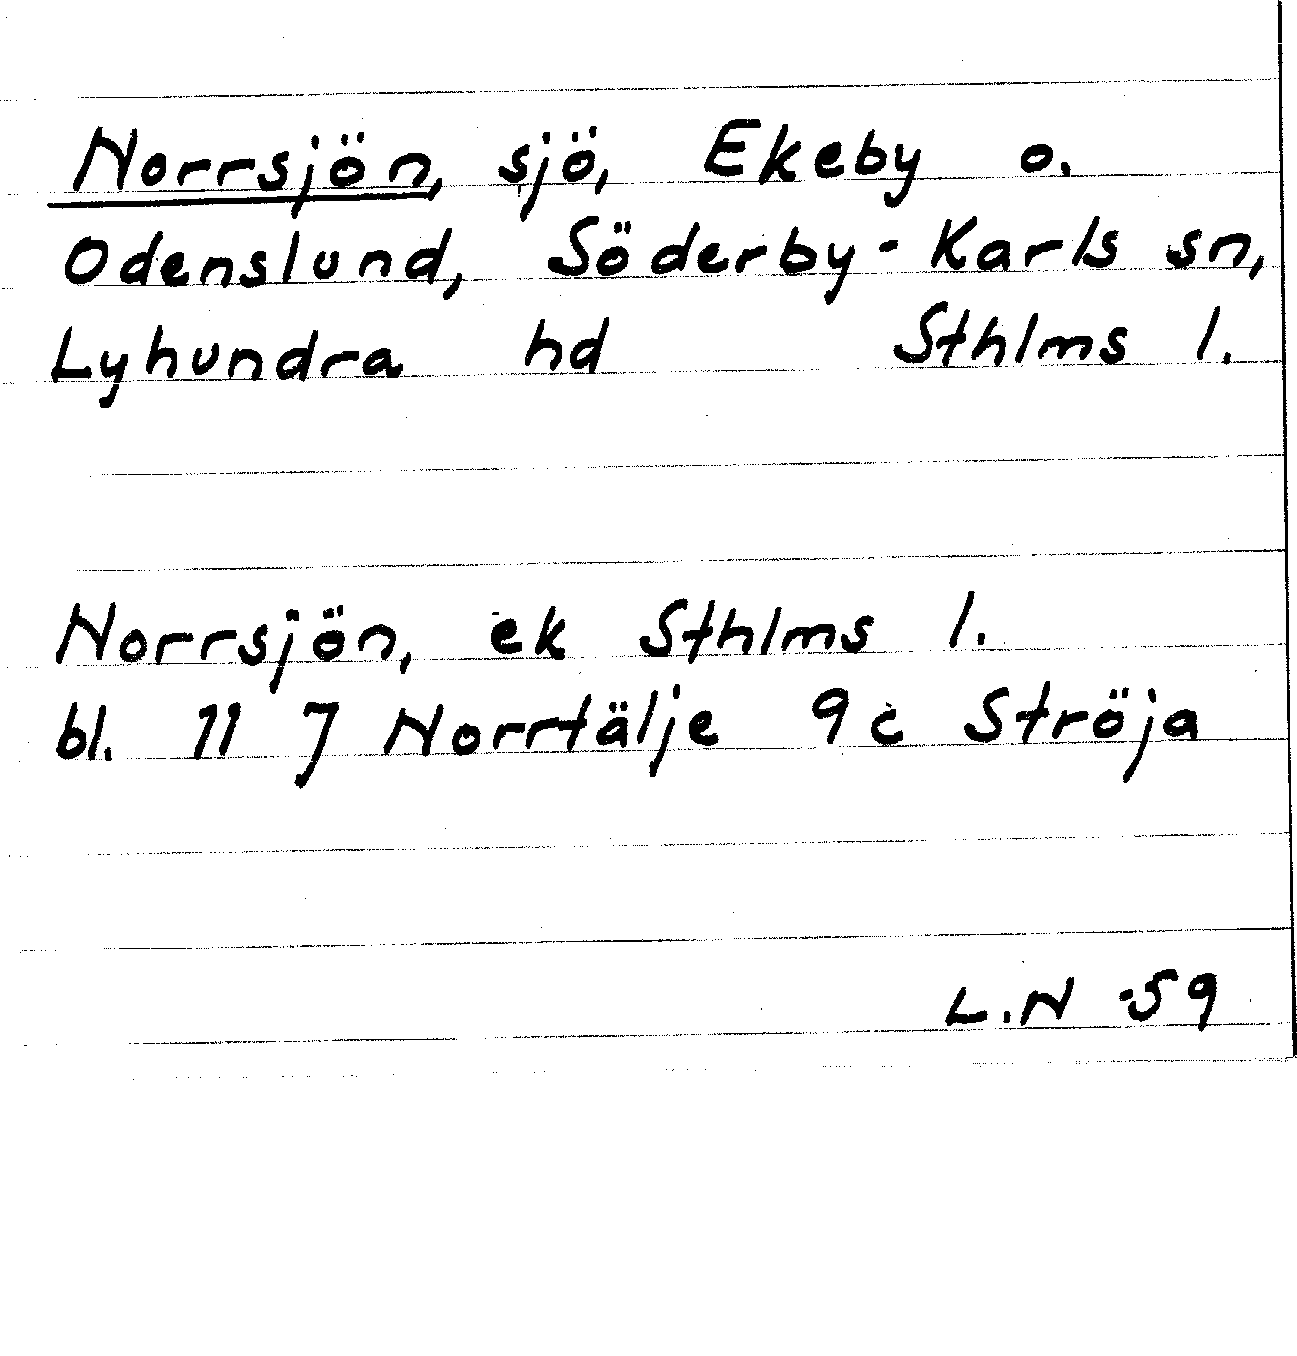 Norrsjön, sjö, Ekeby o.
Odenslund, Söderby-Karls sn,
Lyhundra hd Sthlms l.
Norrsjön, ek Sthlms l.
bl. 11 J Norrtälje 9c Ströja
L.N -59